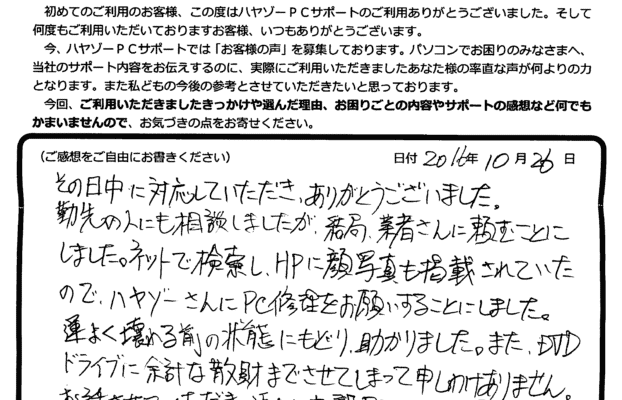 初めてのご利用のお客様、この度はハヤゾーPCサポートのご利用ありがとうございました。そして
何度もご利用いただいておりますお客様、いつもありがとうございます。
今、ハヤゾーPCサポートでは「お客様の声」を募集しております。パソコンでお困りのみなさまへ、
当社のサポート内容をお伝えするのに、実際にご利用いただきましたあなた様の率直な声が何よりの力
となります。また私どもの今後の参考とさせていただきたいと思っております。
今回、ご利用いただきましたきっかけや選んだ理由、お困りごとの内容やサポートの感想など何でも
かまいませんので、お気づきの点をお寄せください。
（ご感想をご自由にお書きください） 日付 2016年 10月 26日
その日中に対応していただき、ありがとうございました。
勤先の人にも相談しましたが、結局、業者さんに頼むことに
しました。ネットで検索し、HPに顔写真も掲載されていた
ので、ハヤゾーさんにPC修理をお願いすることにしました。
運よく壊れる前の状態にもどり、助かりました。また、DVD
ドライブに余計な散財までさせてしまって申しわけありません。